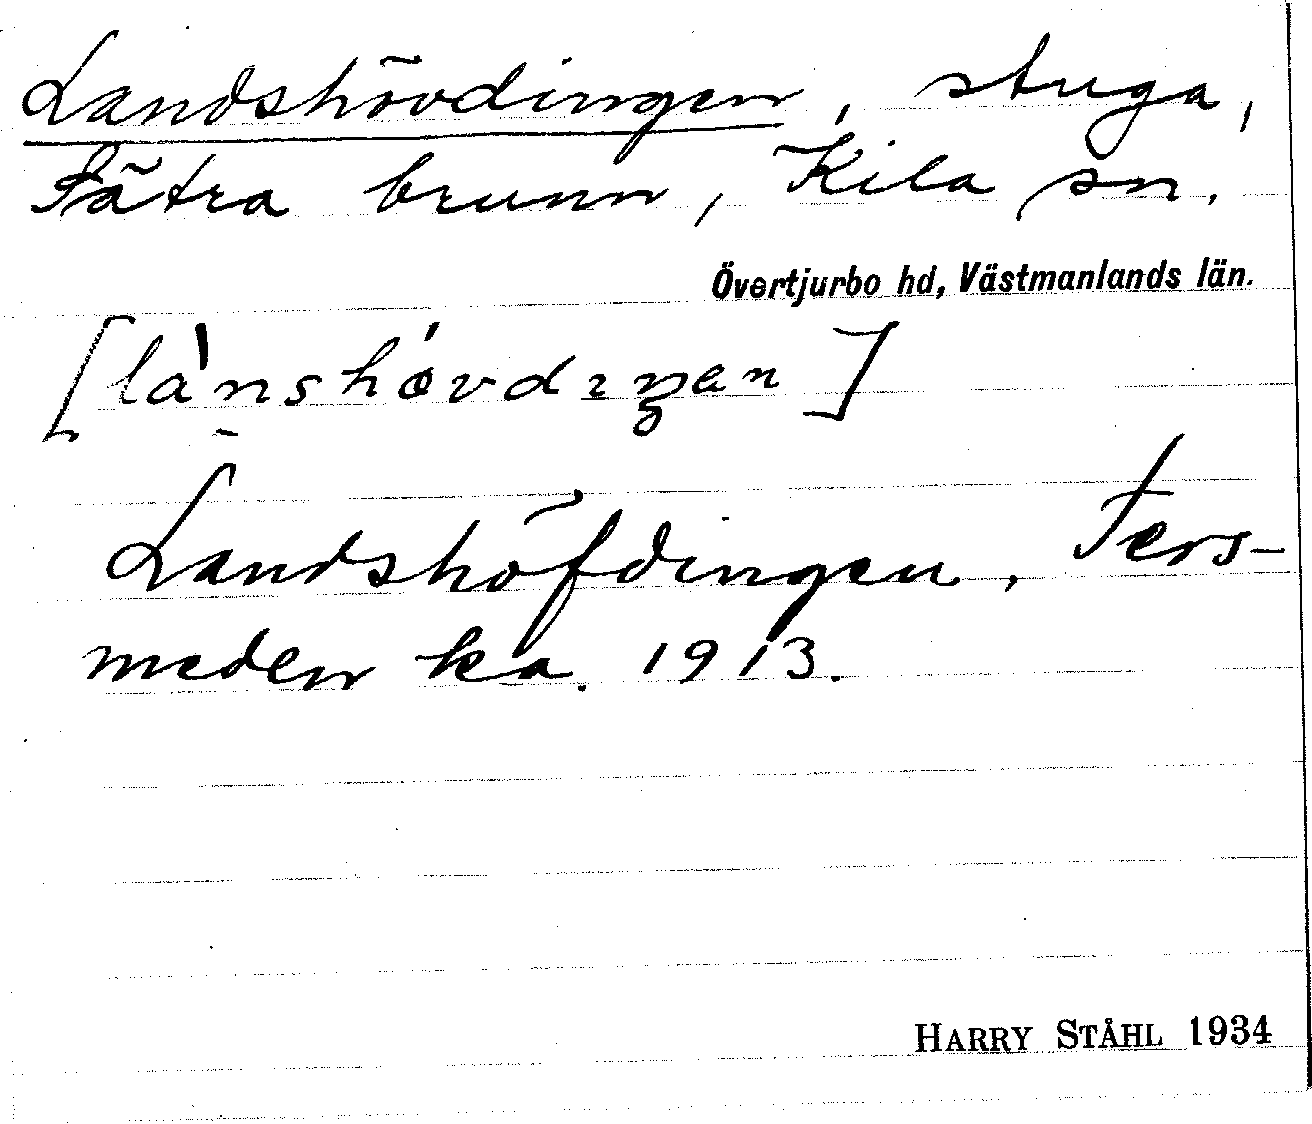 Landshövdingen, stuga,
Sätra brunn, Kila sn.
Övertjurbo hd, Västmanlands län.
[là̱nshǿvdıŋen]
Landshöfdingen, Fers-
meden ka. 1913.
HARRY STÅHL 1934